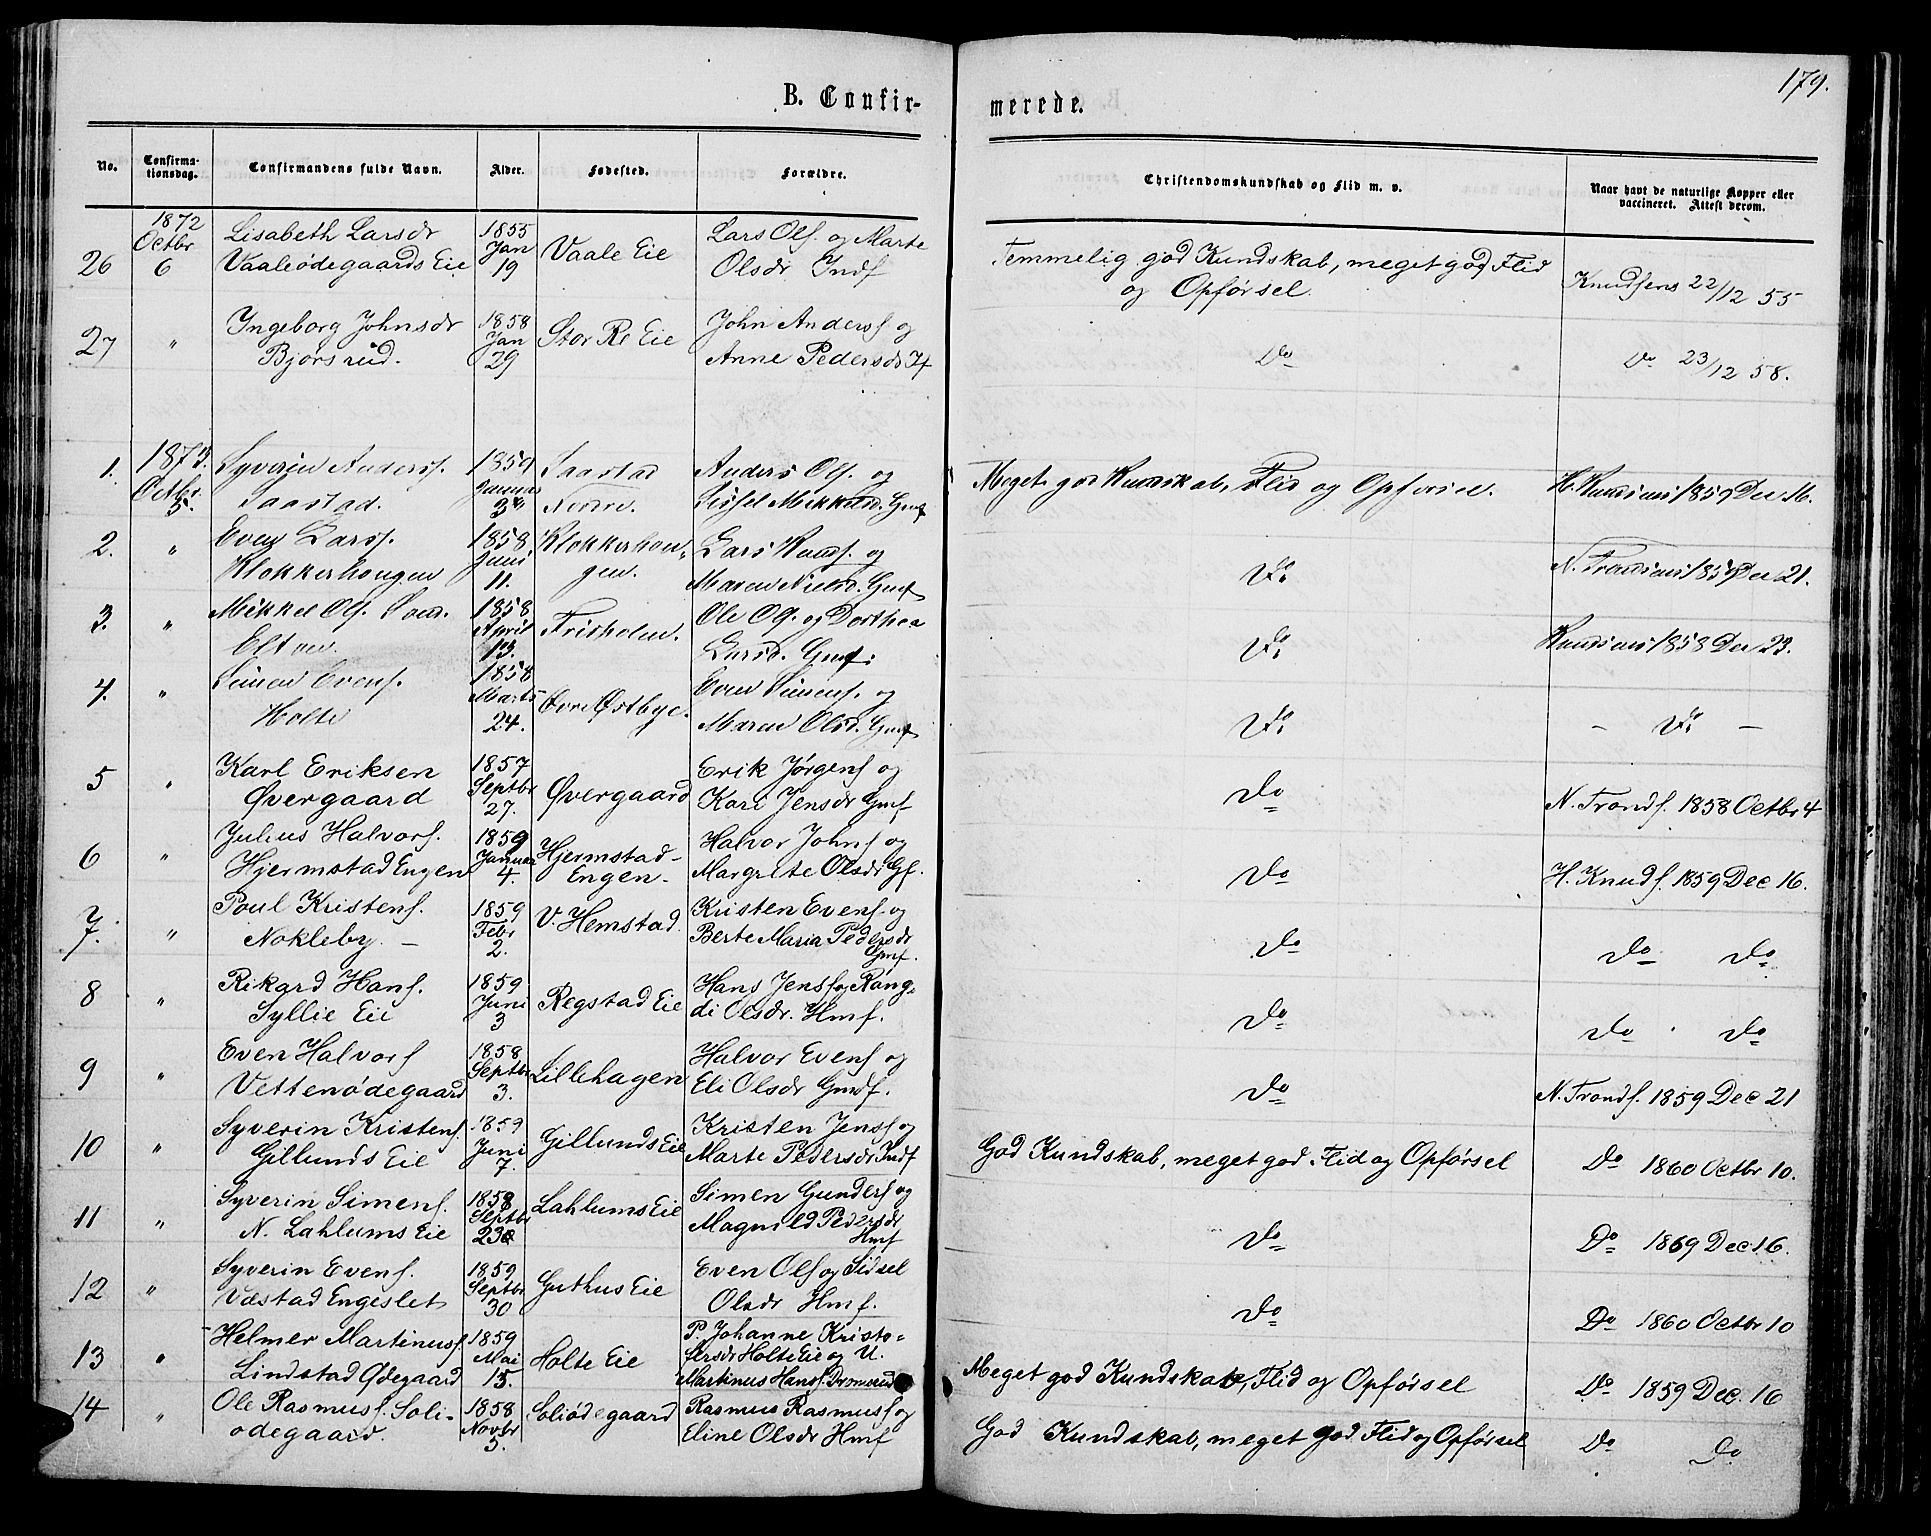 179.
B. Confir-
merede.
No.
Confirma-
tionsdag.
Confirmandens fulde Navn.
Alder.
Fødested.
Forældre.
Christendomskundskab og Flid m. v.
Naar havt de naturlige Kopper eller
vaccineret. Attest derom.
1872 Lisabeth Larsdr 1855 Lars Ols. og Marte
26 Octbr 6 Vaaleødegaards Eie Jan 19 Vaale Eie Olsdr Indf Temmelig god Kundskab, meget god Flid
og Opførsel. Knudsens 22/12 55
27 " Ingeborg Johnsdr 1858 Stor Re Eie John Anders og
Bjørsrud. Jan 29 Anne Pedersdr If Do Do 23/12 58.
1. 1873. Syverin Anders. 1859 Saastad Anders Ols. og Meget god Kundskab, Flid og Opførsel. H. Knudsens 1859 Dec 16.
Octbr. 5. Saastad. Januar Nordre. Sissel Mikkelsd. Gmf
2. " Even Lars. 1858 Klokkerhou- Lars Knuds. og
Klokkerhougen Juni 11. gen. Maren Nielsd. Gmf Do N. Trondsens 1859 Dec 21.
3. " Mikkel Ols. 1858 Frisholm. Ole Ols. og Dorthea
Elton. April 13. Larsd. Gmf. Do Knudsens 1858 Dec 23.
4. " Simen Evens. 1858 Øvre Østbye. Even Simens. og
Holte Marts 24. Maren Olsd. Gmf Do – Do –
5 " Karl Eriksen 1857 Øvergaard Erik Jørgens og
Øvergaard Septbr 27. Kari Jensdr Gmf Do N. Tronds. 1858 Octbr 4
6 " Julius Halvors. 1859 Hjermstad- Halvor Johns og
Hjermstad Engen Januar 4. Engen. Margrete Olsdr Gf. Do H. Knuds. 1859 Dec 16.
7. " Poul Kristens. 1859 V. Hemstad. Kristen Evens. og
Nokleby. – Febr 2. Berte Maria Pedersdr
Gmf. Do Do Do
8 " Rikard Hans. 1859 Regstad Eie Hans Jens og Rang-
Syllie Eie Juni 3 di Olsdr. Hmf. Do Do Do
9 " Even Halvors 1858 Lillehagen Halvor Evens og
Vettenødegaard Septbr 3. Eli Olsdr Gmdf. Do N. Tronds. 1859 Dec 21
10 " Syverin Kristens. 1859 Gillunds Eie Kristen Jens og
Gillunds Eie Juni 7. Marte Pedersdr Indf God Kundskab, meget god Flid og Opførsel Do 1860 Octbr 10.
11 " Syverin Simens. 1858 Lahlums Eie Simen Gunders og
N. Lahlums Eie Septbr Magnild Pedersdr
Hmf Do Do 1859 Dec 16.
12 " Syverin Evens. 1859 Guthus Eie Even Ols og Sidsel
Væstad Engeslet Septbr 30 Olsdr Hmf. Do Do 1860 Octbr 10
13 " Helmer Martinus. 1859 Holte Eie P. Johanne Kristo-
Lindstad Ødegaard Mai 15. fersdr Holte Eie og U.
Martinus Hans. Dromsrud Meget god Kundskab, Flid og Opførsel Do 1859 Dec. 16
14 " Ole Rasmus. Soli- 1858 Soliødegaard Rasmus Rasmus og
ødegaard. Novbr 5. Eline Olsdr Hmf God Kundskab, meget god Flid og Opførsel Do Do